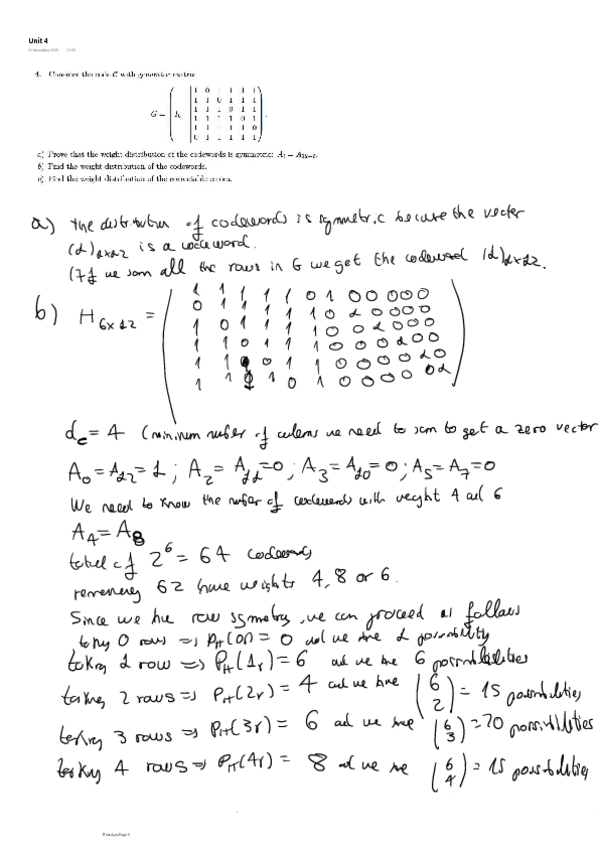 Unit 4
4. Consider the code C with generator matrix
1 0 1 1 1 1
1 1 0 1 1 1
G = I₆ 1 1 1 0 1 1 .
1 1 1 1 0 1
1 1 1 1 1 0
0 1 1 1 1 1
a) Prove that the weight distribution of the codewords is symmetric:
b) Find the weight distribution of the codewords.
c) Find the weight distribution of the correctable errors.
a) the distribution of codewords is symmetric because the vector
(1)₁ₓ₁₂ is a codeword.
(If we sum all the rows in G we get the codeword (1)₁ₓ₁₂.
1 1 1 1 1 0 1 0 0 0 0 0
0 1 1 1 1 1 0 1 0 0 0 0
b) H₆ₓ₁₂ = 1 0 1 1 1 1 0 0 1 0 0 0
1 1 0 1 1 1 0 0 0 1 0 0
1 1 0 1 1 0 0 0 0 1 0
1 1 1 0 1 0 0 0 0 0 1
d_c = 4 (minimum number of columns we need to sum to get a zero vector
A₀ = A₁₂ = 1 ; A₂ = A₁₁ = 0 ; A₃ = A₁₀ = 0 ; A₅ = A₇ = 0
We need to know the number of codewords with weight 4 and 6
A₄ = A₈
total of 2⁶ = 64 codewords
remaining 62 have weights 4, 8 or 6.
Since we have row symmetry, we can proceed as follows
taking 0 rows => P_H(0r) = 0 and we have 1 possibility
taking 1 row => P_H(1r) = 6 and we have 6 possibilities
taking 2 rows => P_H(2r) = 4 and we have (6 2) = 15 possibilities
taking 3 rows => P_H(3r) = 6 and we have (6 3) = 20 possibilities
taking 4 rows => P_H(4r) = 8 and we have (6 4) = 15 possibilities